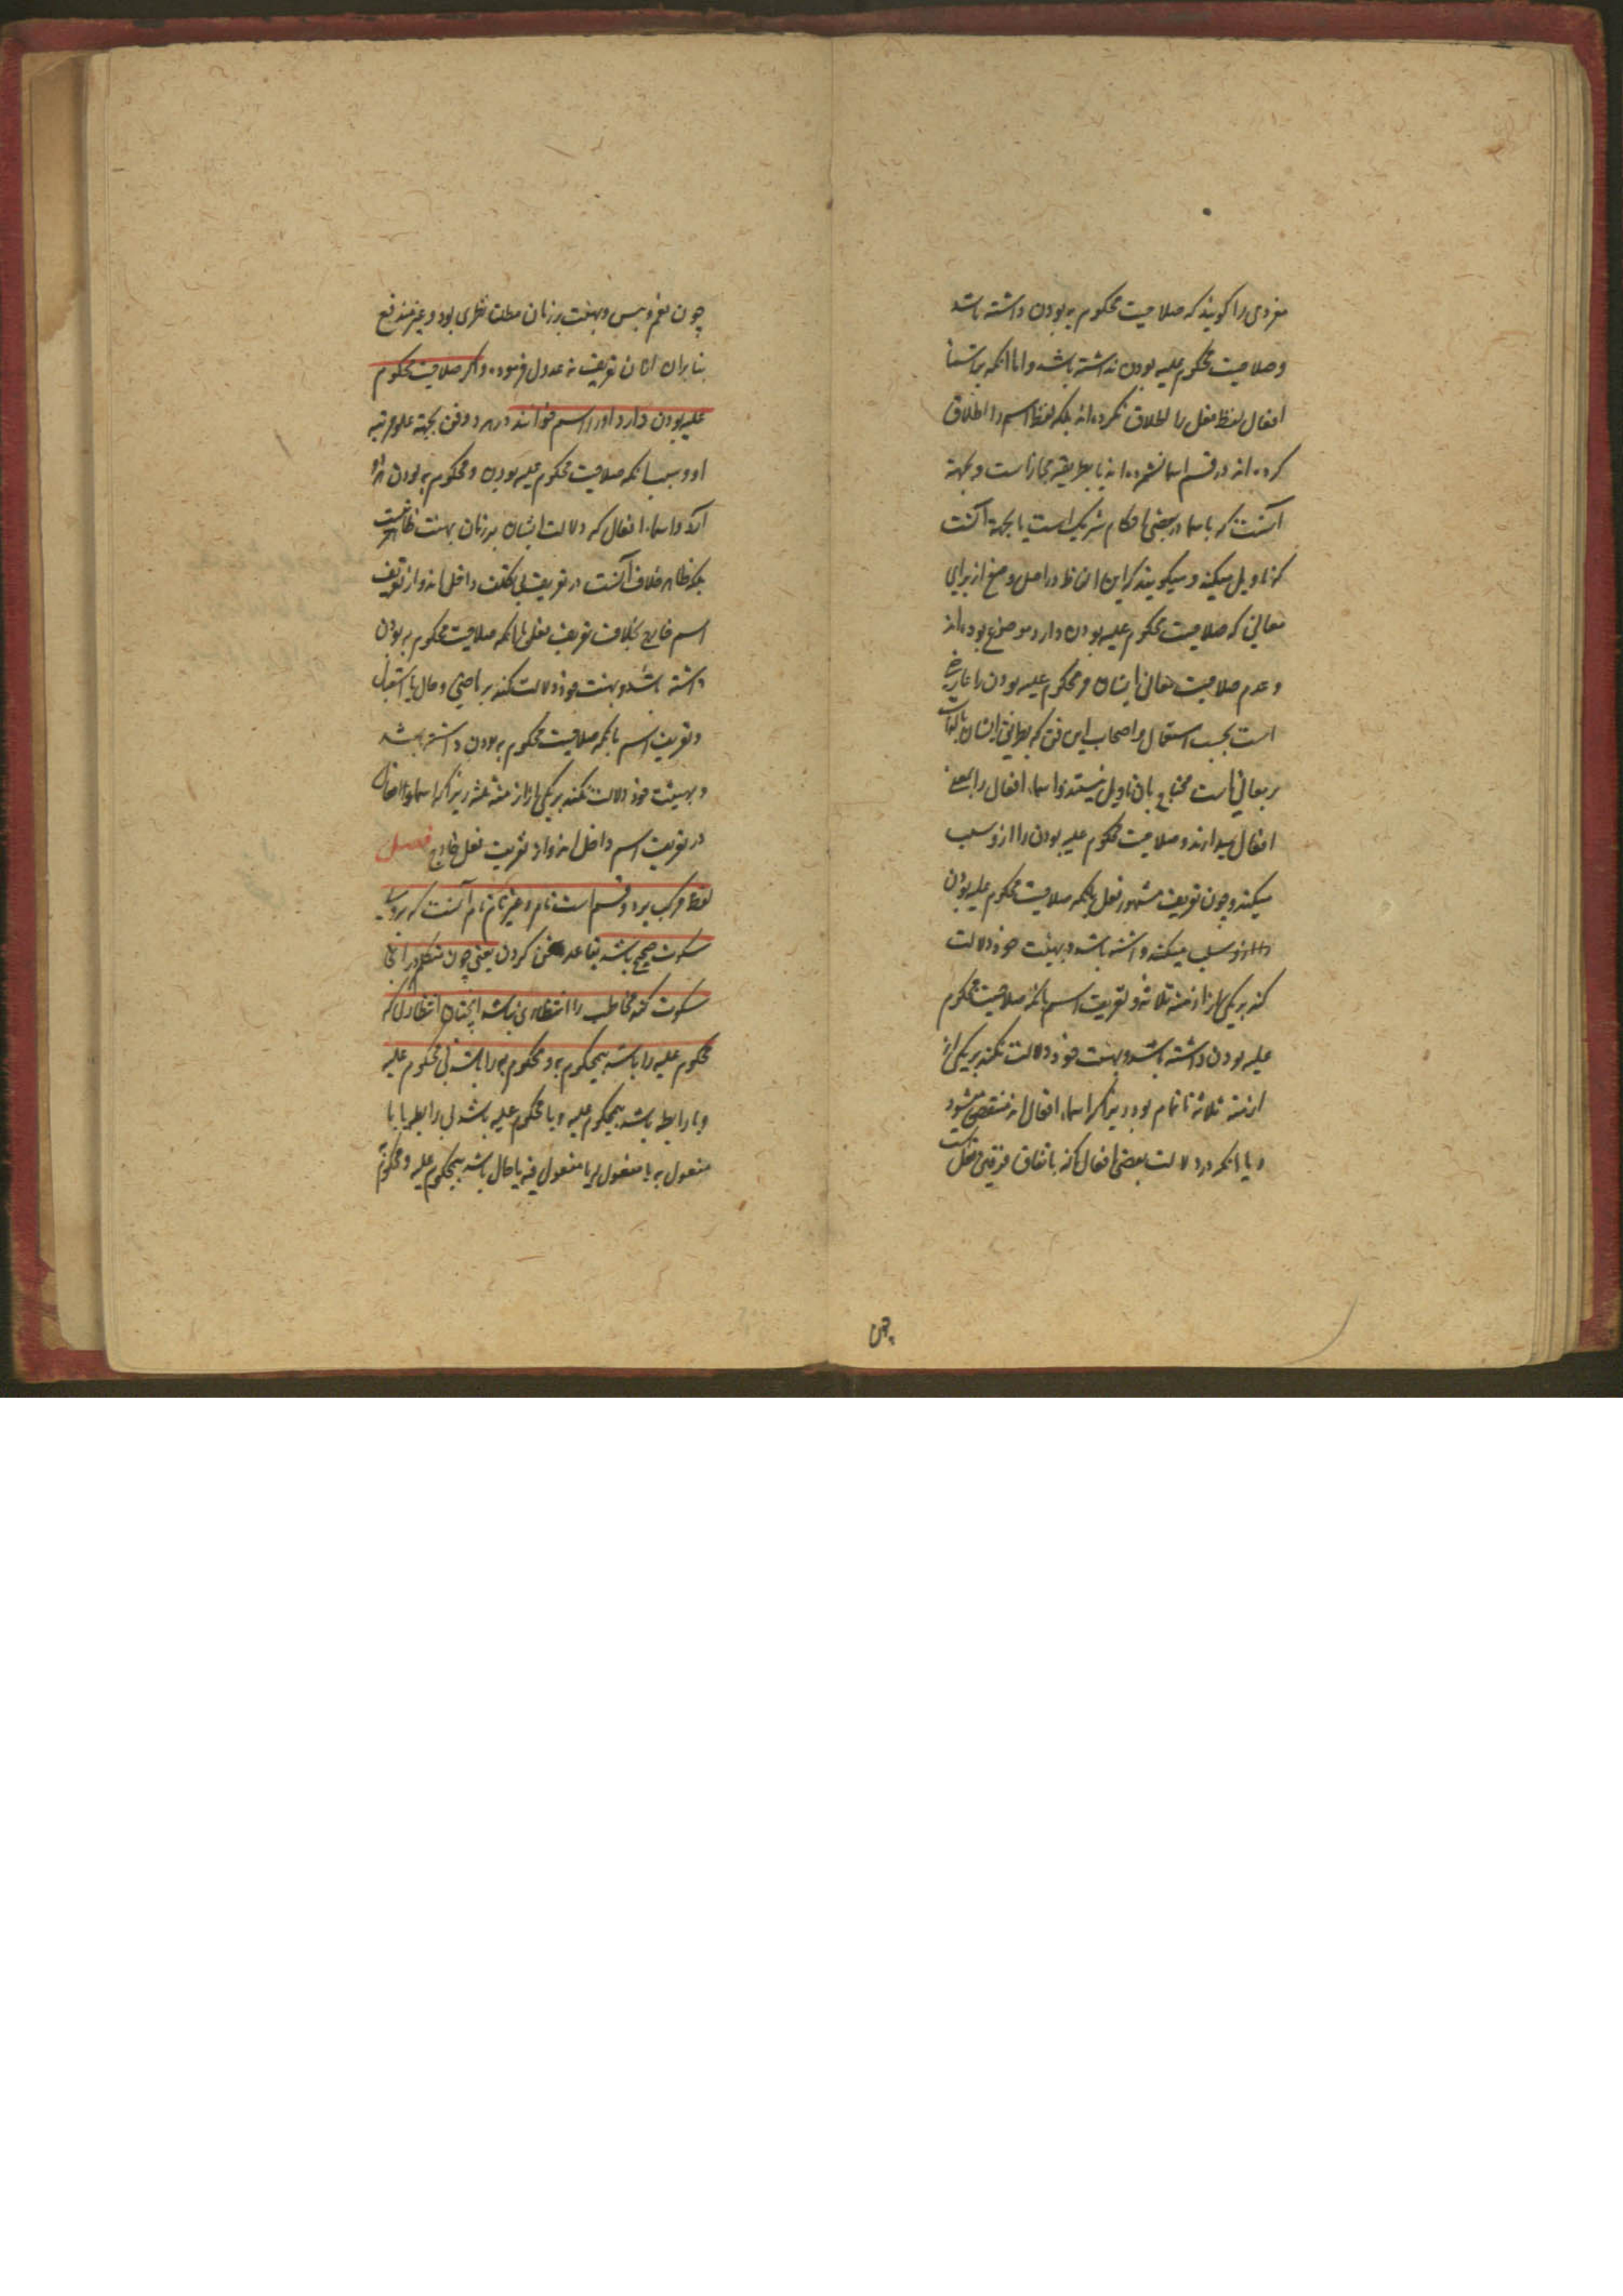 مفردی را گویند که صلاحیت محکوم به بودن داشته باشد
و صلاحیت محکوم علیه بودن نداشته باشد و اما انکه بر اسماء
افعال لفظ فعل را اطلاق نکرده اند بلکه لفظ اسم را اطلاق
کرده اند در قسم اسما نشمرده اند یا بطریقه مجاز است و بجهة
آنست که با سما در بعضی احکام شریک است یا بجهة آنست
که تاویل میکنند و میگویند که این الفاظ در اصل وضع از برای
معانی که صلاحیت محکوم علیه بودن دارد موضوع بوده اند
و عدم صلاحیت معانی ایشان مر محکوم علیه بودن را عارضی
است بحسب استعمال و اصحاب این فن که نظر ایشان بالذات
بر معانی است محتاج بان تاویل نیستند و اسماء افعال را بمعنی
افعال میدارند و صلاحیت محکوم علیه بودن را از و سلب
میکنند و چون تعریف مشهور فعل بانکه صلاحیت محکوم علیه بودن
سلب میکند داشته باشد و بهیئت خود دلالت
کند بر یکی از ازمنه ثلاثه و تعریف اسم بانکه صلاحیت محکوم
علیه بودن داشته باشد و بهیئت خود دلالت نکند بر یکی از
ازمنه ثلاثه ناتمام بود زیرا که اسماء افعال منتقض میشود
و یا انکه در دلالت بعضی افعال که باتفاق فریقین فعل است
چون
چون نعم و بئس و بهیئت بر زمان مطلب نظری بود و غیر مندفع
بنابران از آن تعریف عدول فرموده و اگر صلاحیت محکوم
علیه بودن دارد او را اسم خوانند در هر دو فن بجهة علو مرتبه
او و بسبب انکه صلاحیت محکوم علیه بودن و محکوم به بودن هر دو
دارد و اسماء افعال که دلالت ایشان بر زمان بهیئت ظاهر نیست
بلکه ظاهر خلاف آنست در تعریف بی تکلف داخل اند و از تعریف
اسم خارج بخلاف تعریف فعل بانکه صلاحیت محکوم به بودن
داشته باشد و بهیئت خود دلالت کند بر ماضی و حال یا استقبال
و تعریف اسم بانکه صلاحیت محکوم به بودن داشته باشد
و بهیئت خود دلالت نکند بر یکی از ازمنه ثلثه زیرا که اسماء افعال
در تعریف اسم داخل اند و از تعریف فعل خارج فصل
لفظ مرکب بر دو قسم است تام و غیر تام تام آنست که بر وی
سکوت صحیح باشد بقاعده سخن کردن یعنی چون متکلم در انجا
سکوت کند مخاطب را انتظاری نباشد انچنان انتظاری که
محکوم علیه را باشد بمحکوم به و محکوم به را باشد بی محکوم علیه
و یا رابطه باشد بمحکوم علیه و یا محکوم علیه باشد بی رابطه یا با
مفعول به یا مفعول له یا مفعول فیه یا حال باشد بمحکوم علیه و محکوم به